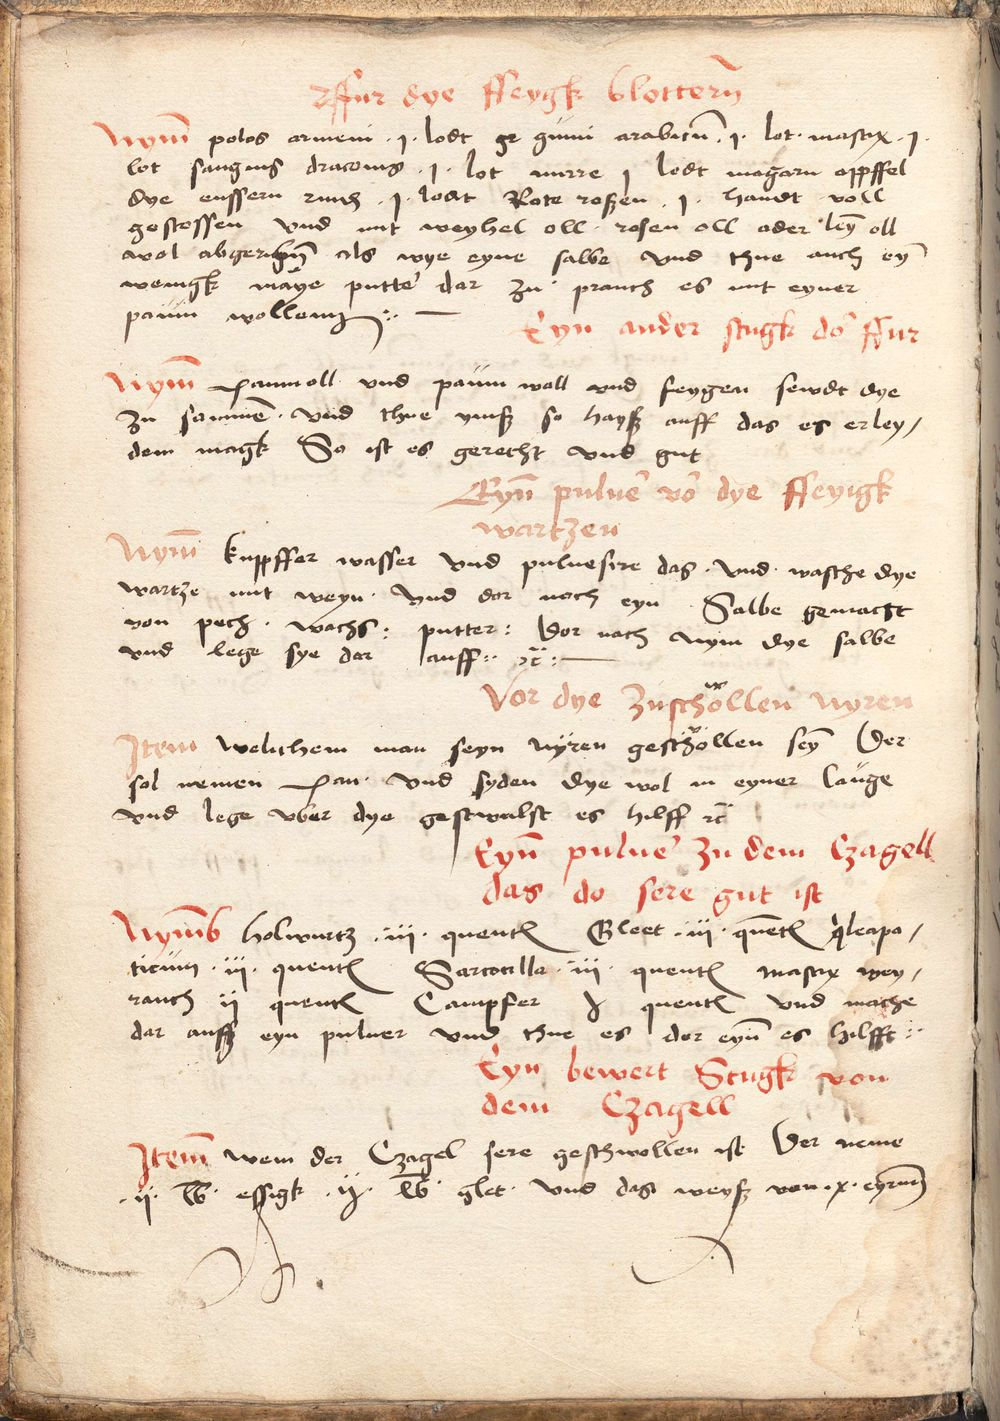 ffur dye ffeygk blottern̄
Nym̄ polos armeni · j · lodt gr gūmi arabicū · j · lot · mastix · j ·
lot sangnis draconis · j · lot mirre j lodt magarn oppffel
dye eussern rind · j · lodt Rote roßen · j · handt voll
gestossen vnd mit weyhel oll · rosen oll oder leÿ oll
wol abgeribn̄ als wye eyne salbe vnd thue auch eÿ
wenigk maÿe putter dar zu · prauch es mit eyner
paum wollenn :: —
Eyn ander stugk do ffur
Nym̄ paumoll vnd paum woll vnd feygen sewdt dye
zu samme · vnd thue ymß so hayß auff das es erley/
dem magk So ist es gerecht vnd gut
Eyn̄ puluer vor dye ffeyigk
wartzen
Nym̄ kuppffer wasser vnd puluesire das · vnd · wasche dye
wartze mit weyn · vnd dor noch eyn Salbe gemacht
von pech · wachs : putter : Dor nach nym dye salbe
vnd lege sye dar auff :: rc̄ : —
Vor dye zuschwollen nyren
Item welichem man seyn nÿren geschwollen seÿ Der
sol nemen pan · vnd syden dye wol in eyner lauge
vnd lege vber dye geswulst es hilff rc̄
Eyn̄ puluer zu dem Czagell
das do sere gut ist
Nym̄b holwurtz · iii · quentl Gleet · iii · quētl qleapa/
ticum · iii · quentl Sarcocilla · iii · quentl mastix wey/
rauch ij quentl Campfer j quentl vnd mache
dar auß eyn puluer vnd thue es dor eyn̄ es hilfft ::
Eyn bewert Stugk von
dem Czagell
Item̄ wem der Czagel sere geschwollen ist Der neme
· ij · lb · essigk · ij · lb · glet · vnd das weyß von · x · eyrnn